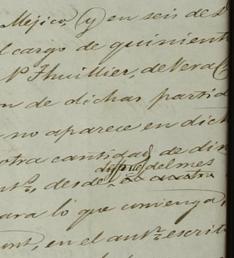 Mejico, (y en seis de
cargo de quinient
Nº Thuillier, de Vera
n de dichas partid
no aparece en dich
otra cantidad de din
despues del mes
desde
ara lo que convenga
en el antr. escrit